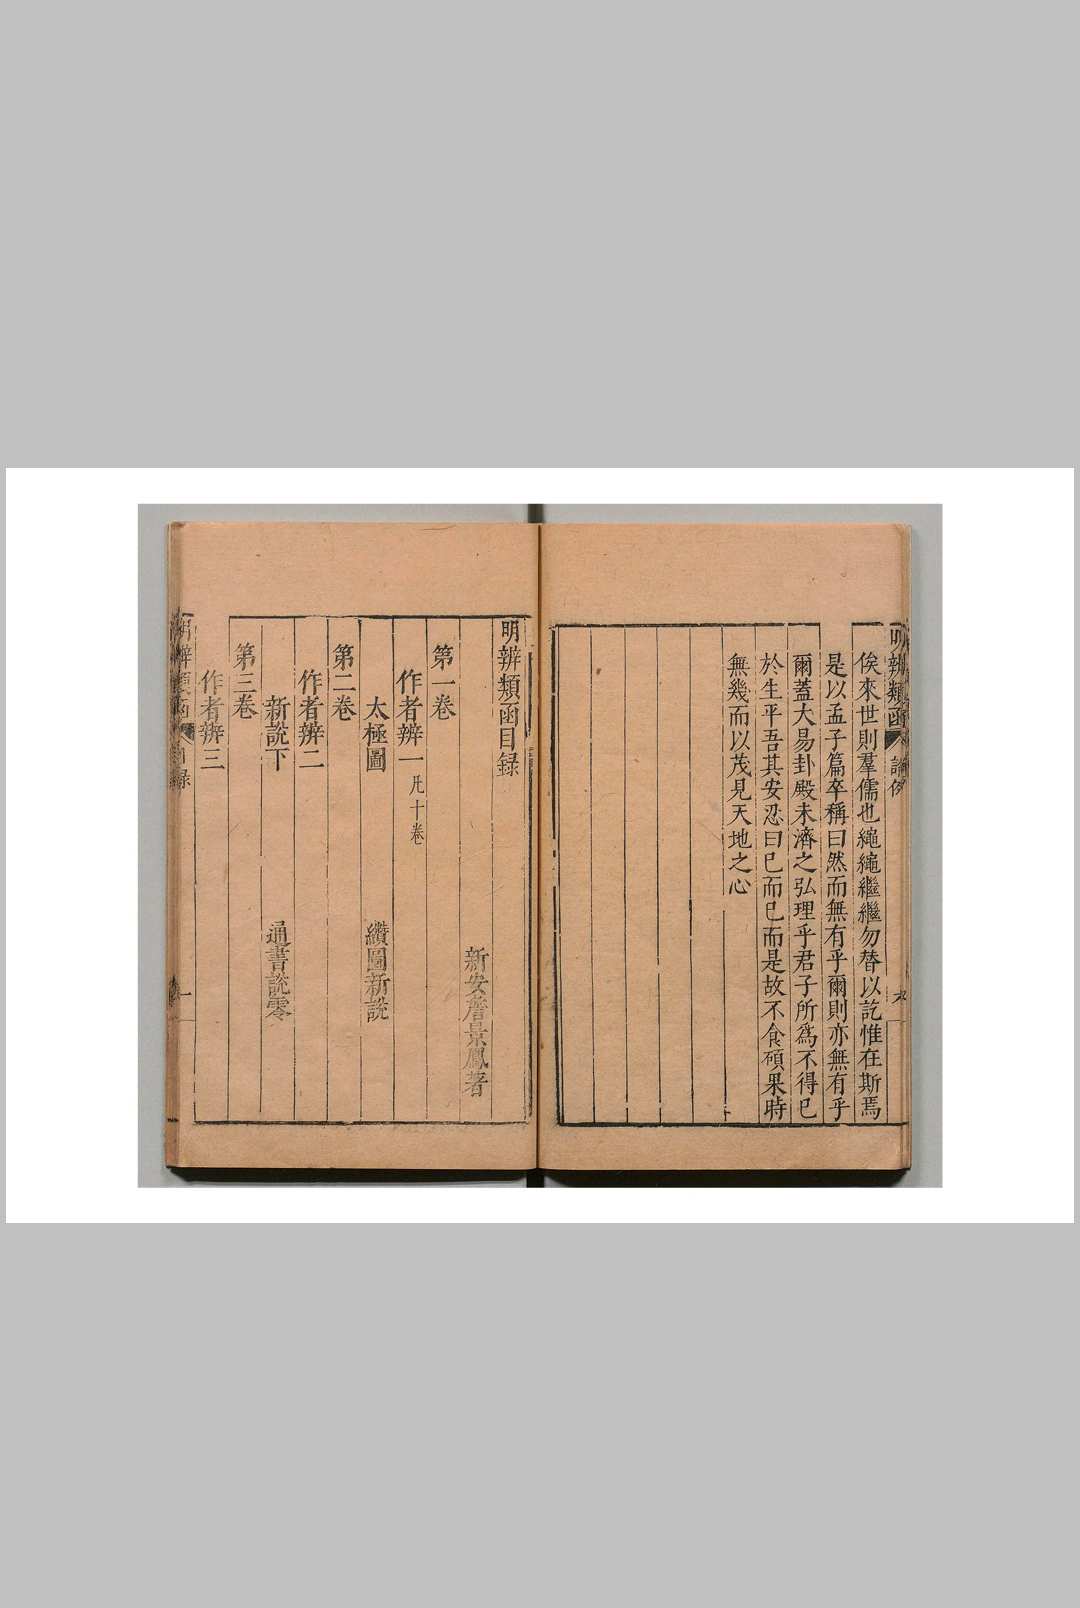 明辨類函 論例 九
俟來世則羣儒也繩繩繼繼勿替以訖惟在斯焉
是以孟子篇卒稱曰然而無有乎爾則亦無有乎
爾蓋大易卦殿未濟之弘理乎君子所爲不得已
於生平吾其安忍曰已而已而是故不食碩果時
無幾而以茂見天地之心
明辨類函目録
新安詹景鳳著
第一卷
作者辨一 凡十卷
太極圖 纘圖新說
第二卷
作者辨二
新說下 通書說零
第三卷
作者辨三
明辨類函 目録 一